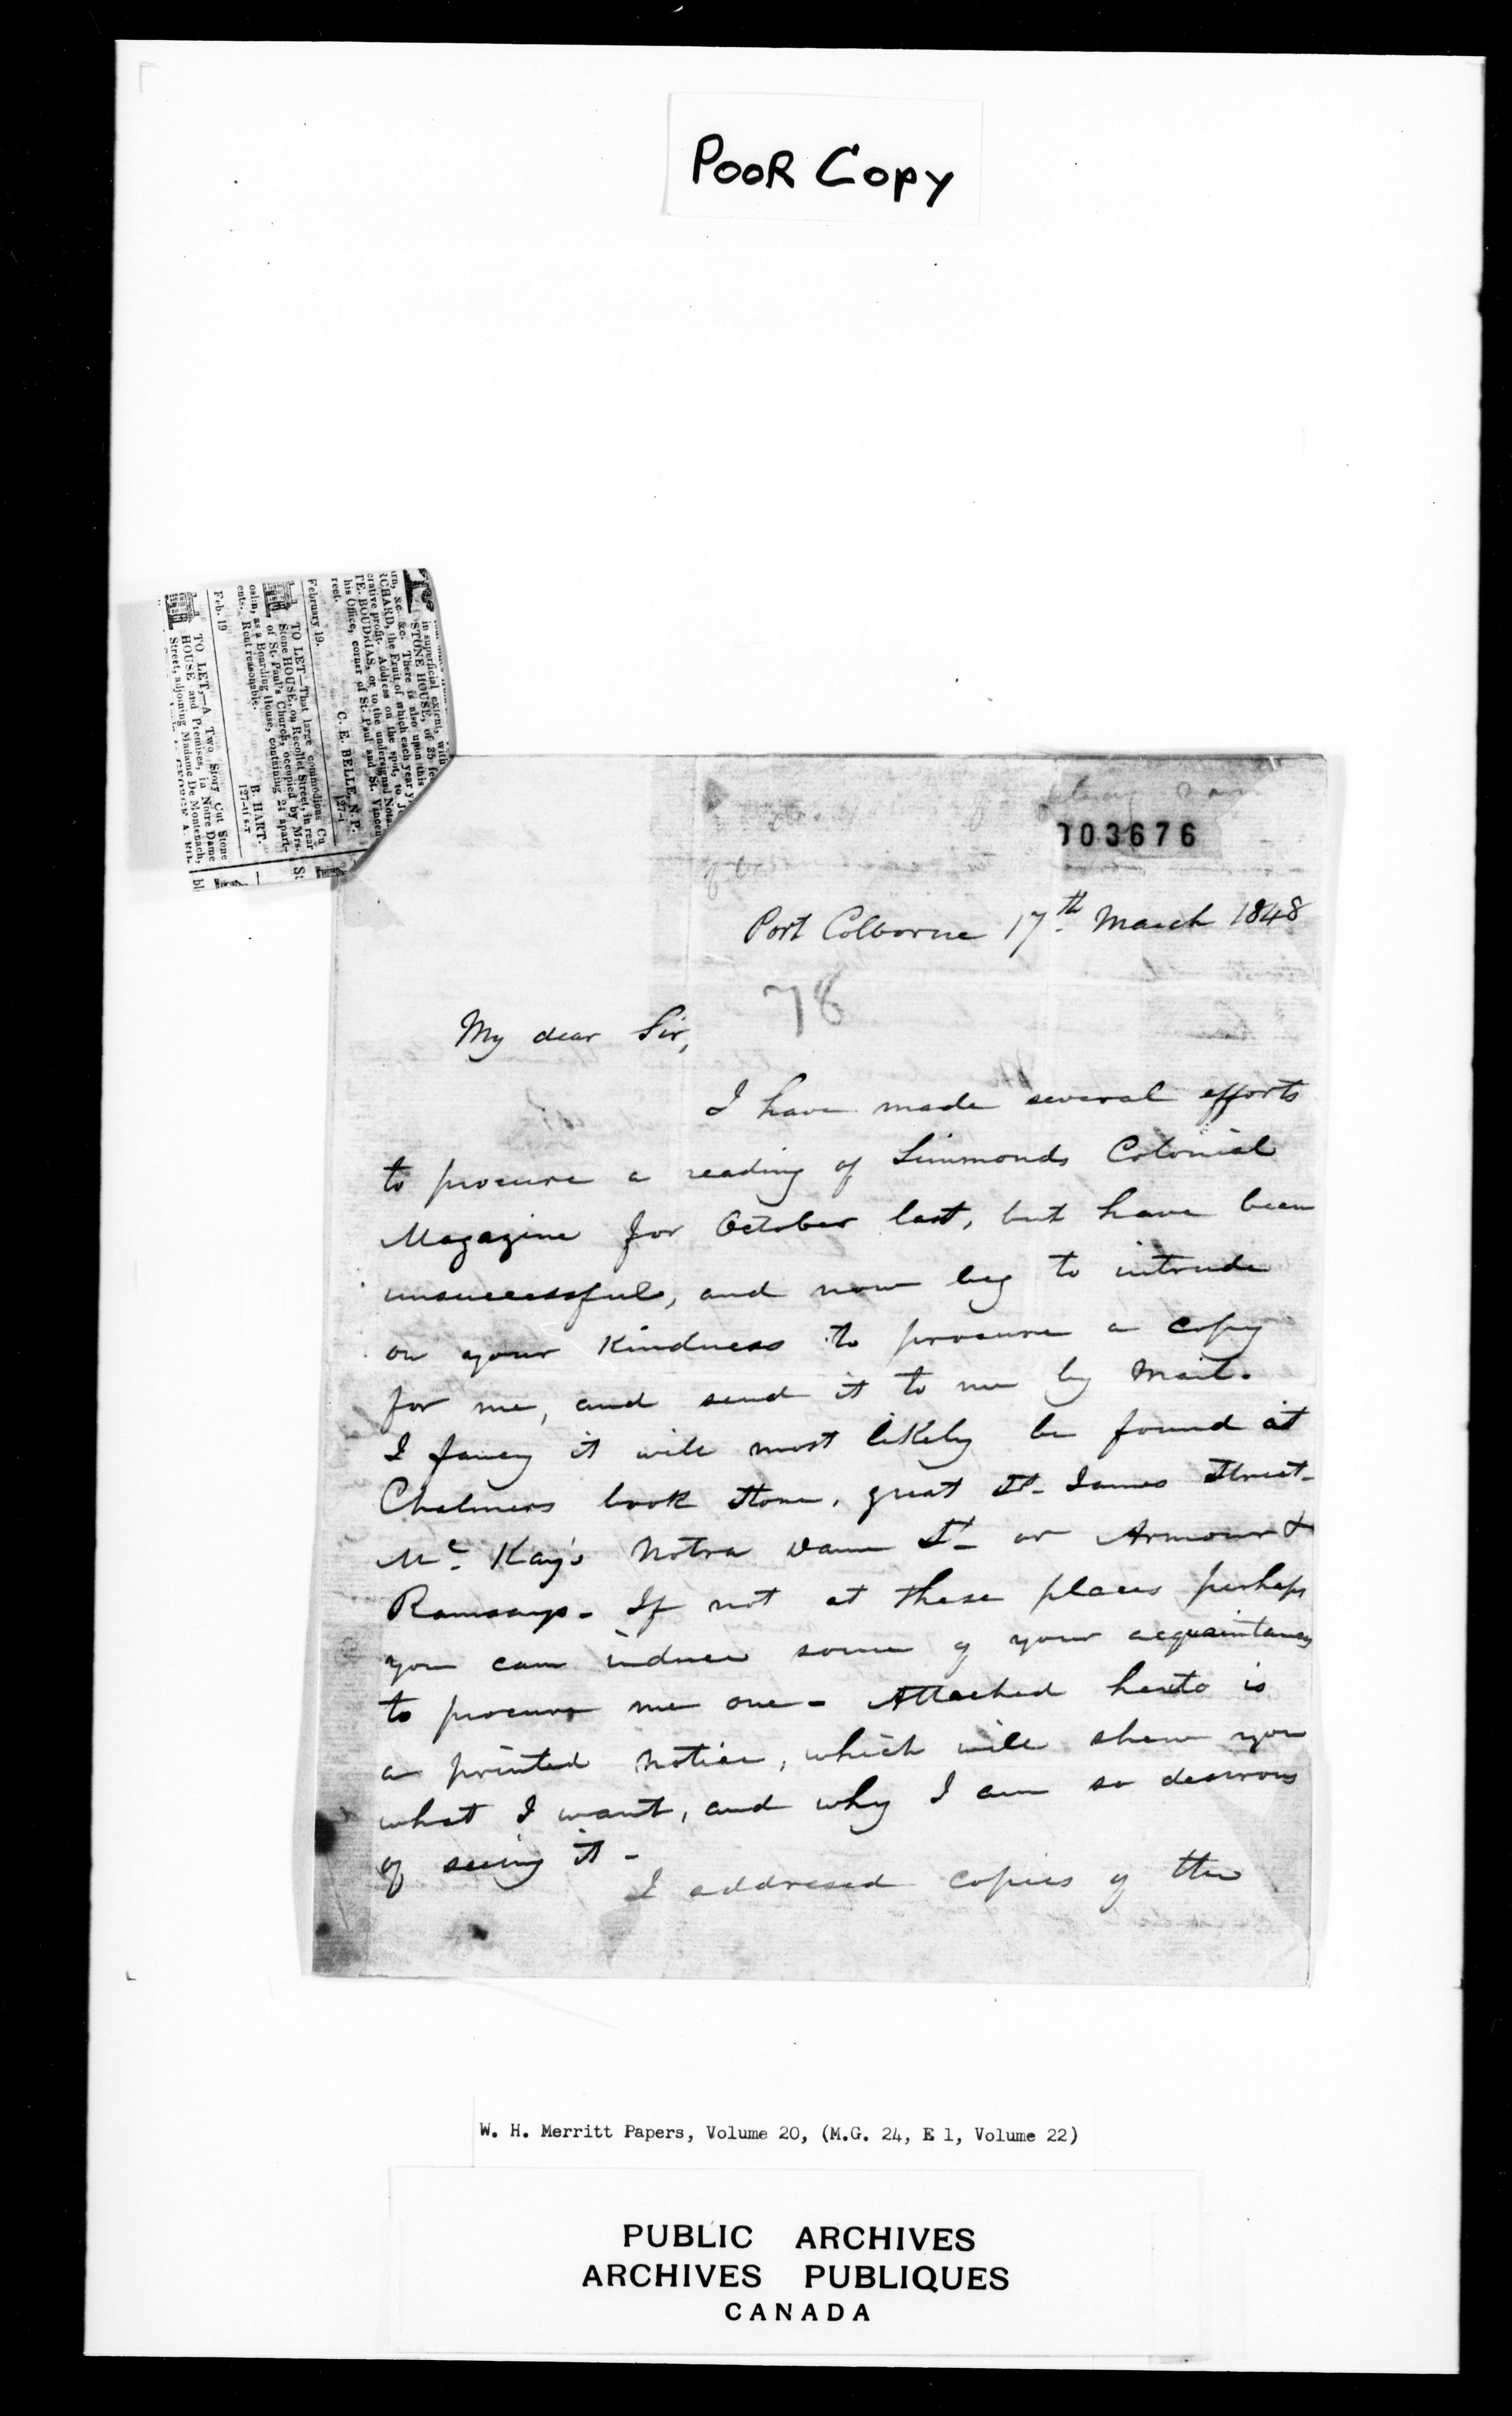 POOR COPY
in superficial extent, with
STONE HOUSE, of 25 fe
&c. &c. There is also upon this
RCHARD, the Fruit of which each year y
crative profit. Address on the spot, to J.
TE. BOUDRIAS, or to the undersigned Nota
his Office, corner of St. Paul and St. Vincen
reet.
C. E. BELLE, N.P.
February 19. 127-t
TO LET—That large commodious Cu
Stone HOUSE, on Recollet Street, in rear
of St. Paul's Church, occupied by Mrs.
oslin, as a Boarding House, containing 24 apart-
ents. Rent reasonable.
B. HART.
Feb. 19 127-tf s-T
TO LET,—A Two Story Cut Stone
HOUSE and Premises, in Notre Dame
Street, adjoining Madame De Montenach,
003676
Port Colborne 17th March 1848
78
My dear Sir,
I have made several efforts
to procure a reading of Simmonds Colonial
Magazine for October last, but have been
unsuccessful, and now beg to intrude
on your Kindness to procure a copy
for me, and send it to me by Mail.
I fancy it will most likely be found at
Chalmers book Store, great St. James Street-
Mc Kay's Notra Dame St- or Armour &
Ramsays- If not at these places perhaps
you can induce some of your acquaintances
to procure me one- Attached hereto is
a printed notice, which will shew you
what I want, and why I am so desirous
of seeing it-
I addressed copies of the
W. H. Merritt Papers, Volume 20, (M.G. 24, E 1, Volume 22)
PUBLIC ARCHIVES
ARCHIVES PUBLIQUES
CANADA